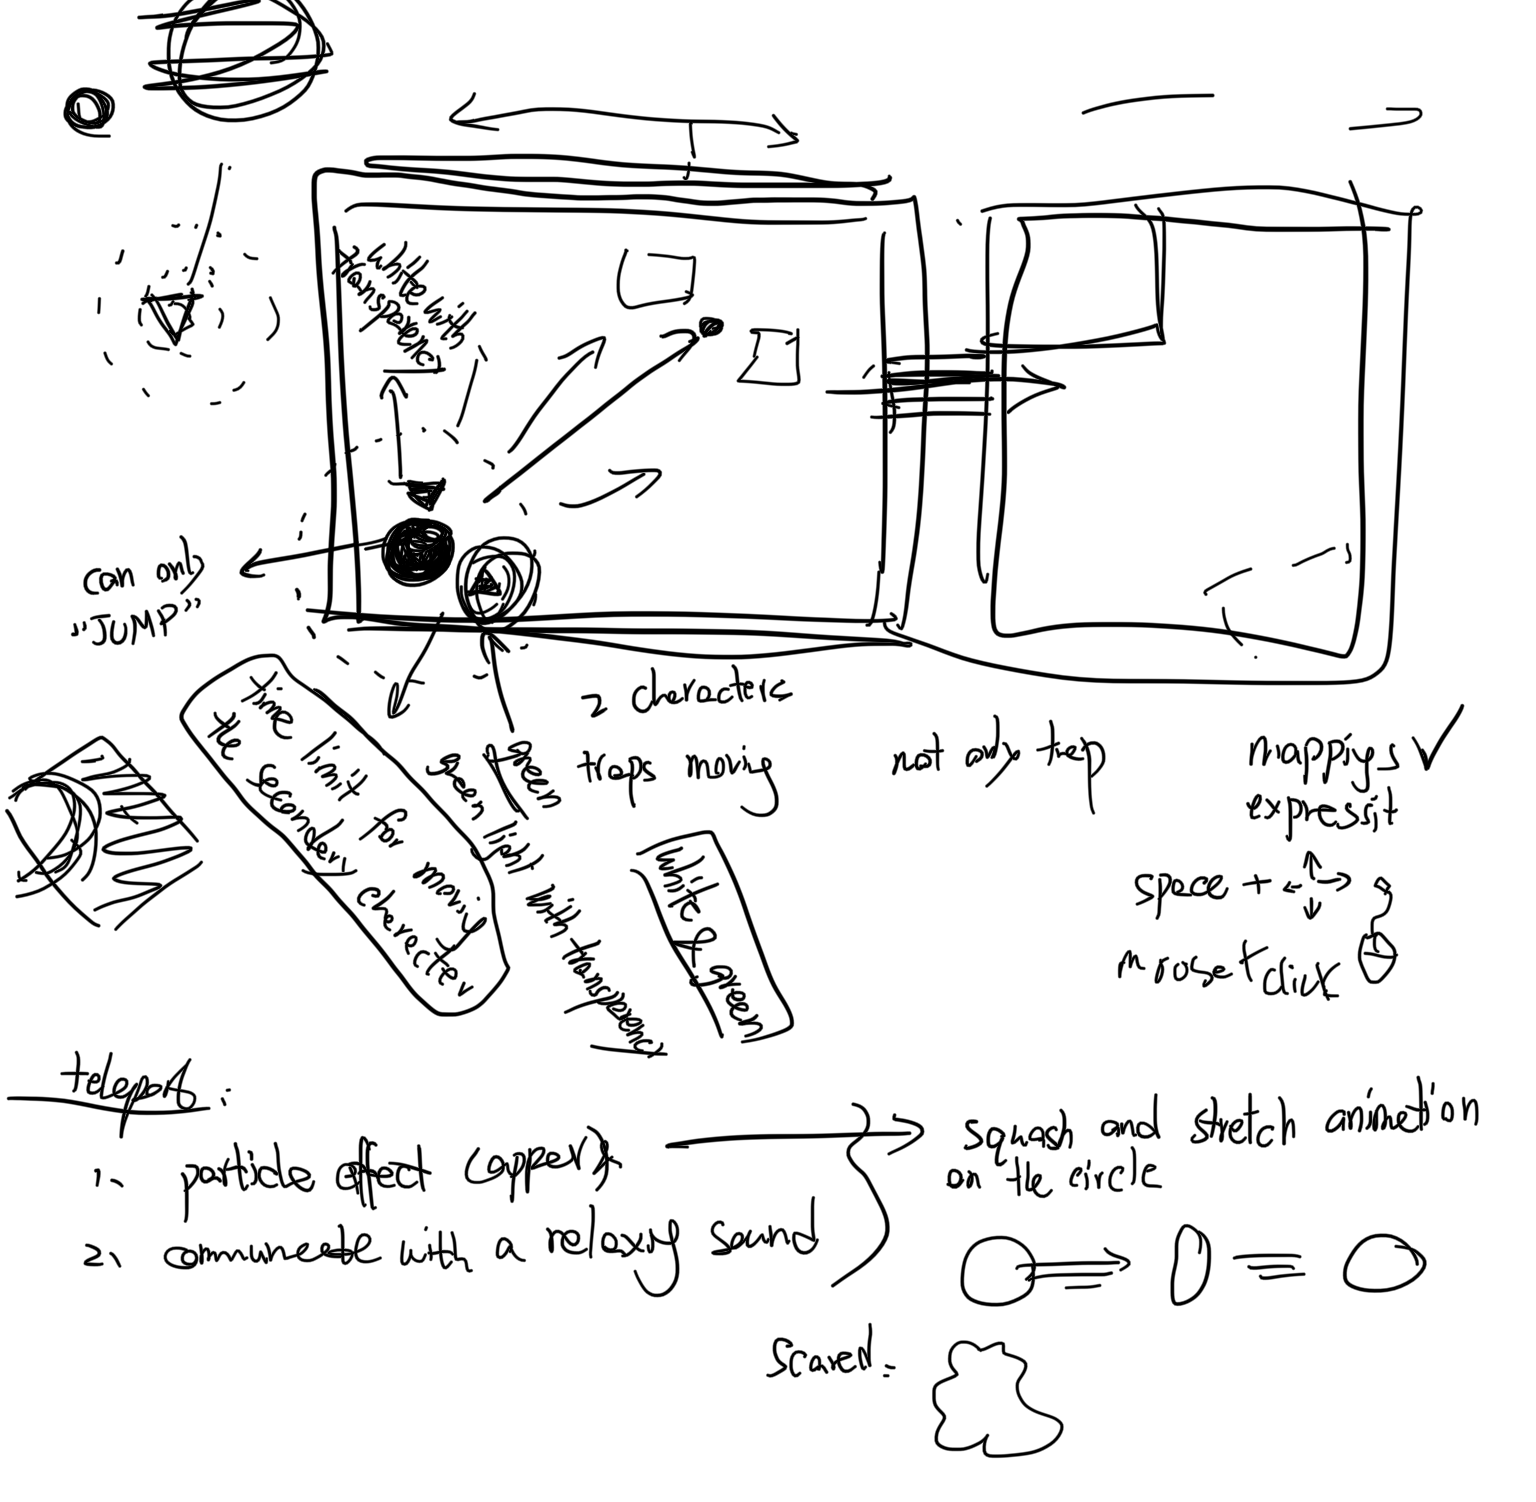 white with
transparency
can only
"JUMP"
time limit for moving
the secondery cherecter
green
green light with transparency
2 characters
traps moving
white & green
not only trap
mappings
expressit
space +
mouse + click
teleport:
1. particle effect (apper)
2. communecate with a relaxing sound
squash and stretch animetion
on the circle
scared: